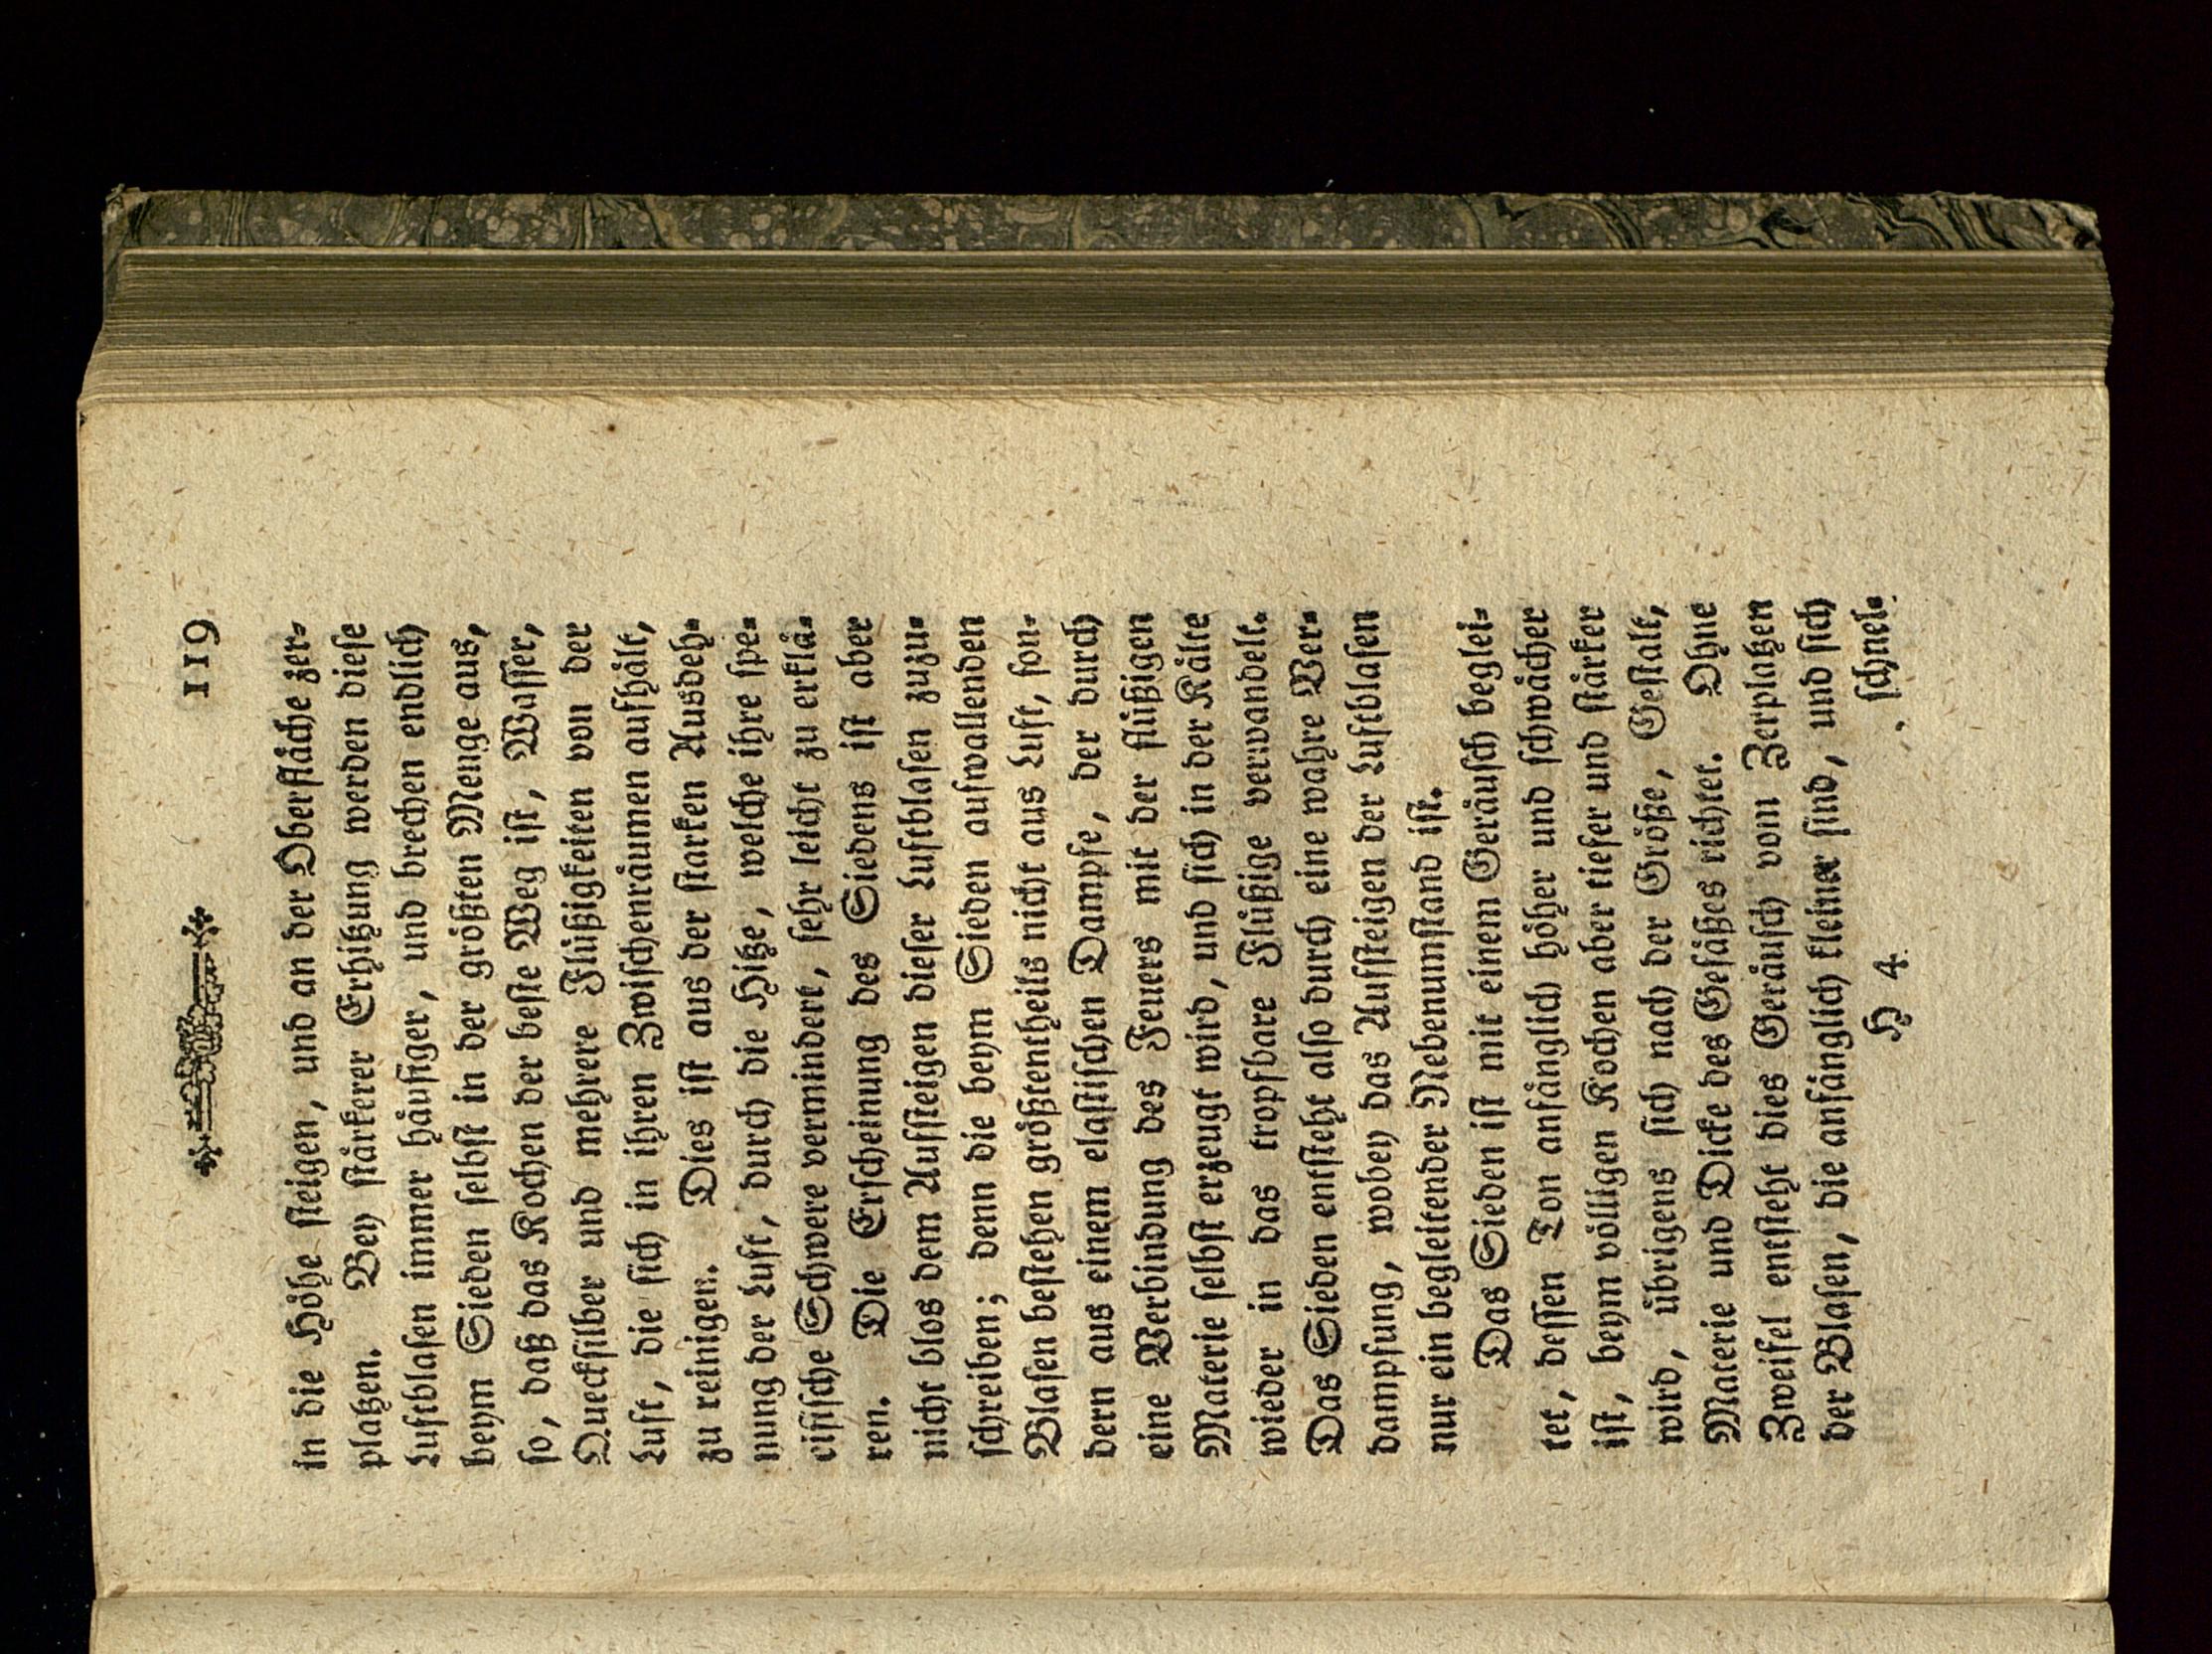 119
in die Höhe ſteigen, und an der Oberfläche zer-
platzen. Bey ſtärkerer Erhitzung werden dieſe
Luftblaſen immer häufiger, und brechen endlich
beym Sieden ſelbſt in der größten Menge aus,
ſo, daß das Kochen der beſte Weg iſt, Waſſer,
Queckſilber und mehrere Flüßigkeiten von der
Luft, die ſich in ihren Zwiſchenräumen aufhält,
zu reinigen. Dies iſt aus der ſtarken Ausdeh-
nung der Luft, durch die Hitze, welche ihre ſpe-
cifiſche Schwere vermindert, ſehr leicht zu erklä-
ren. Die Erſcheinung des Siedens iſt aber
nicht blos dem Aufſteigen dieſer Luftblaſen zuzu-
ſchreiben; denn die beym Sieden aufwallenden
Blaſen beſtehen größtentheils nicht aus Luft, ſon-
dern aus einem elaſtiſchen Dampfe, der durch
eine Verbindung des Feuers mit der flüßigen
Materie ſelbſt erzeugt wird, und ſich in der Kälte
wieder in das tropfbare Flüßige verwandelt.
Das Sieden entſteht alſo durch eine wahre Ver-
dampfung, wobey das Aufſteigen der Luftblaſen
nur ein begleitender Nebenumſtand iſt.
Das Sieden iſt mit einem Geräuſch beglei-
tet, deſſen Ton anfänglich höher und ſchwächer
iſt, beym völligen Kochen aber tiefer und ſtärker
wird, übrigens ſich nach der Größe, Geſtalt,
Materie und Dicke des Gefäßes richtet. Ohne
Zweifel entſteht dies Geräuſch vom Zerplatzen
der Blaſen, die anfänglich kleiner ſind, und ſich
H 4 ſchnel-